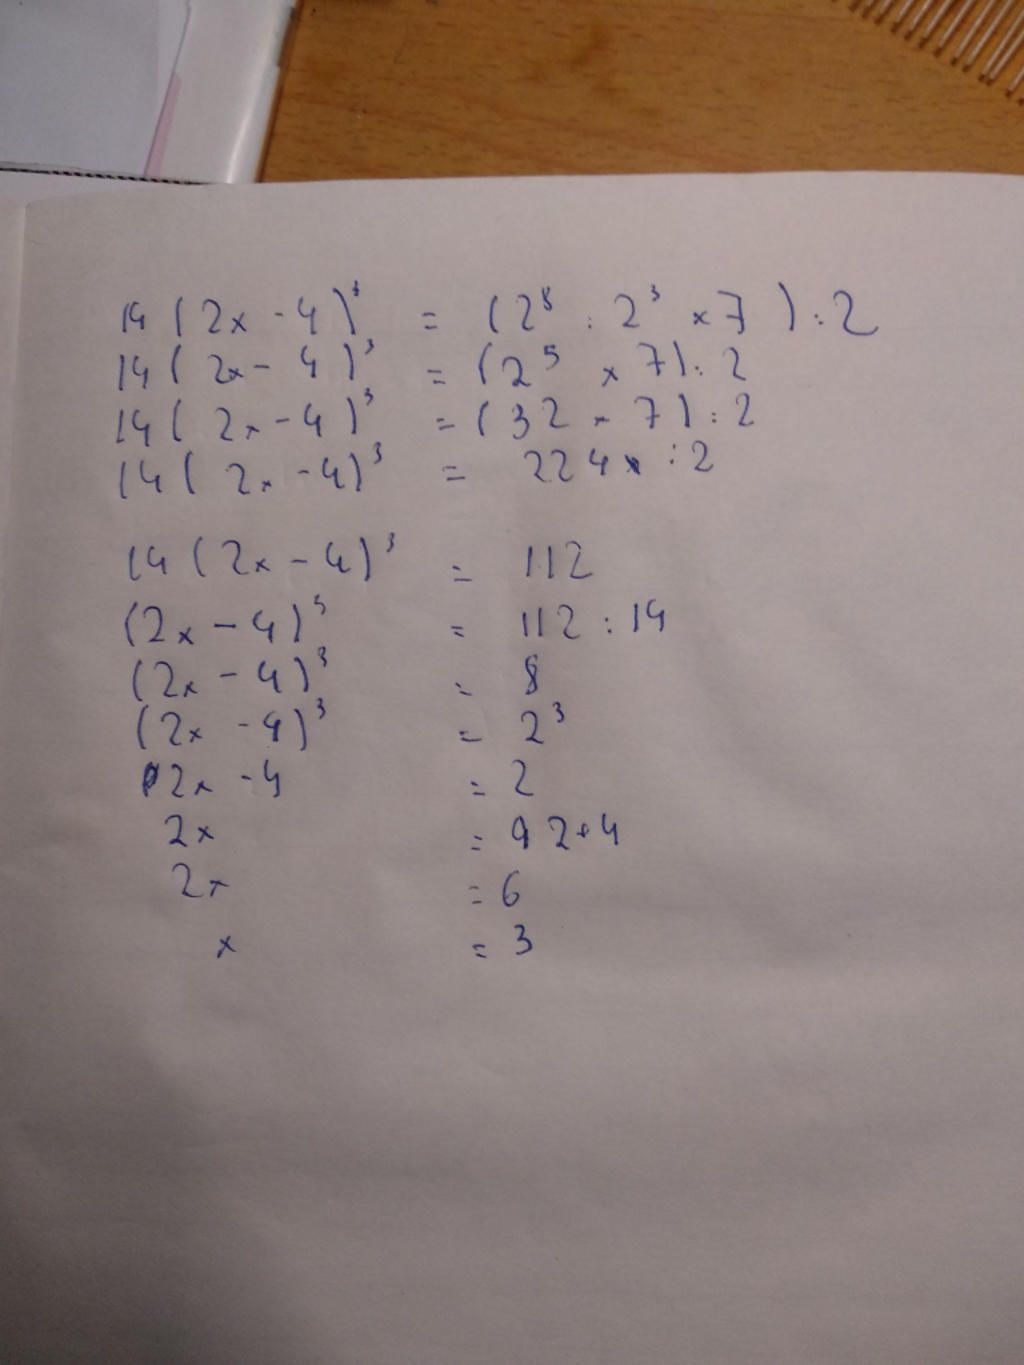 14 ( 2x - 4 )³ = ( 2⁸ : 2³ × 7 ) : 2
14 ( 2x - 4 )³ = ( 2⁵ × 7 ) : 2
14 ( 2x - 4 )³ = ( 32 × 7 ) : 2
14 ( 2x - 4 )³ = 224 : 2
14 ( 2x - 4 )³ = 112
( 2x - 4 )³ = 112 : 14
( 2x - 4 )³ = 8
( 2x - 4 )³ = 2³
2x - 4 = 2
2x = 2 + 4
2x = 6
x = 3